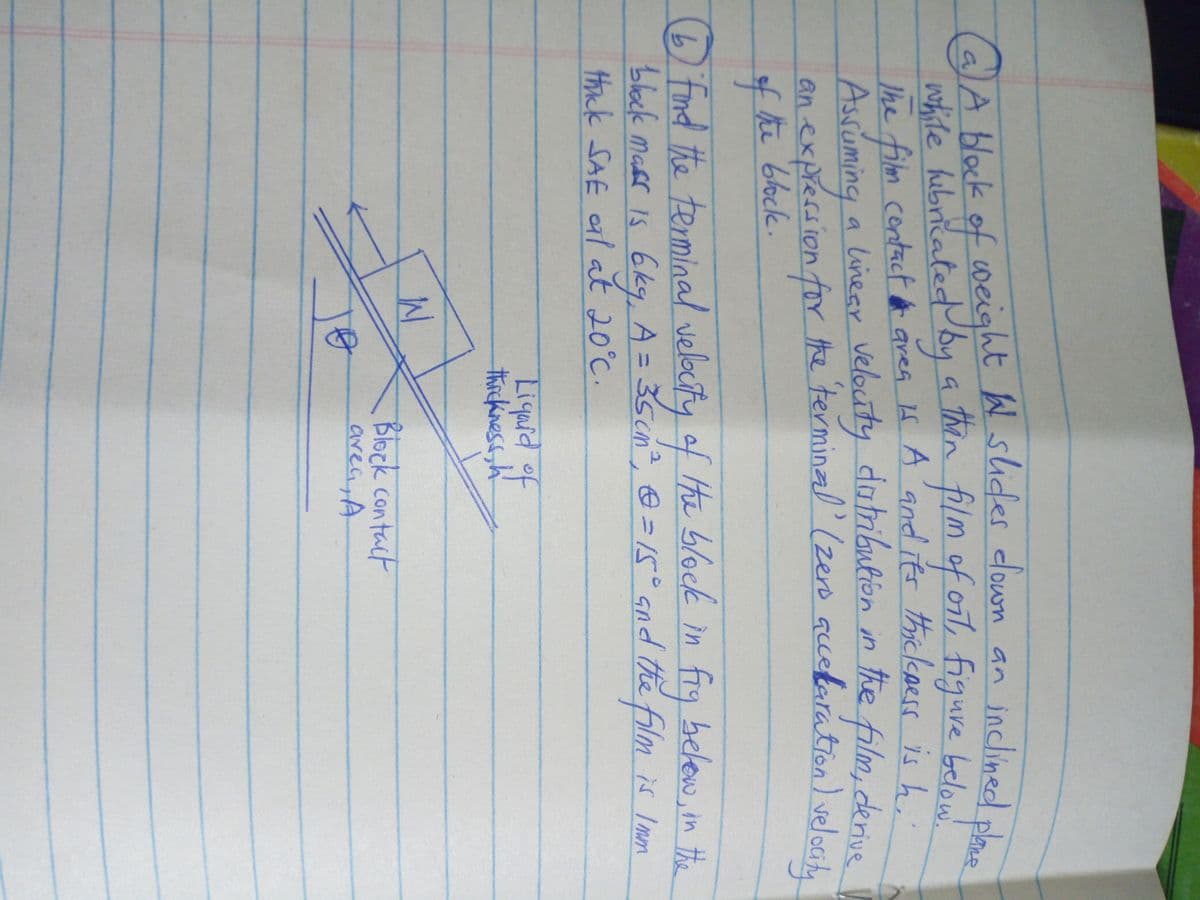 (a) A block of weight W slides down an inclined plane
while lubricated by a thin film of oil, figure below.
The film contact area is A and its thickness is h.
Assuming a linear velocity distribution in the film, derive
an expression for the 'terminal' (zero accelaration) velocity
of the block.
(b) find the terminal velocity of the block in fig below, in the
block mass is 6kg, A = 35cm², θ = 15° and the film is 1mm
thick SAE oil at 20°c.
Liquid of
thickness, h
W
Block contact
area, A
θ